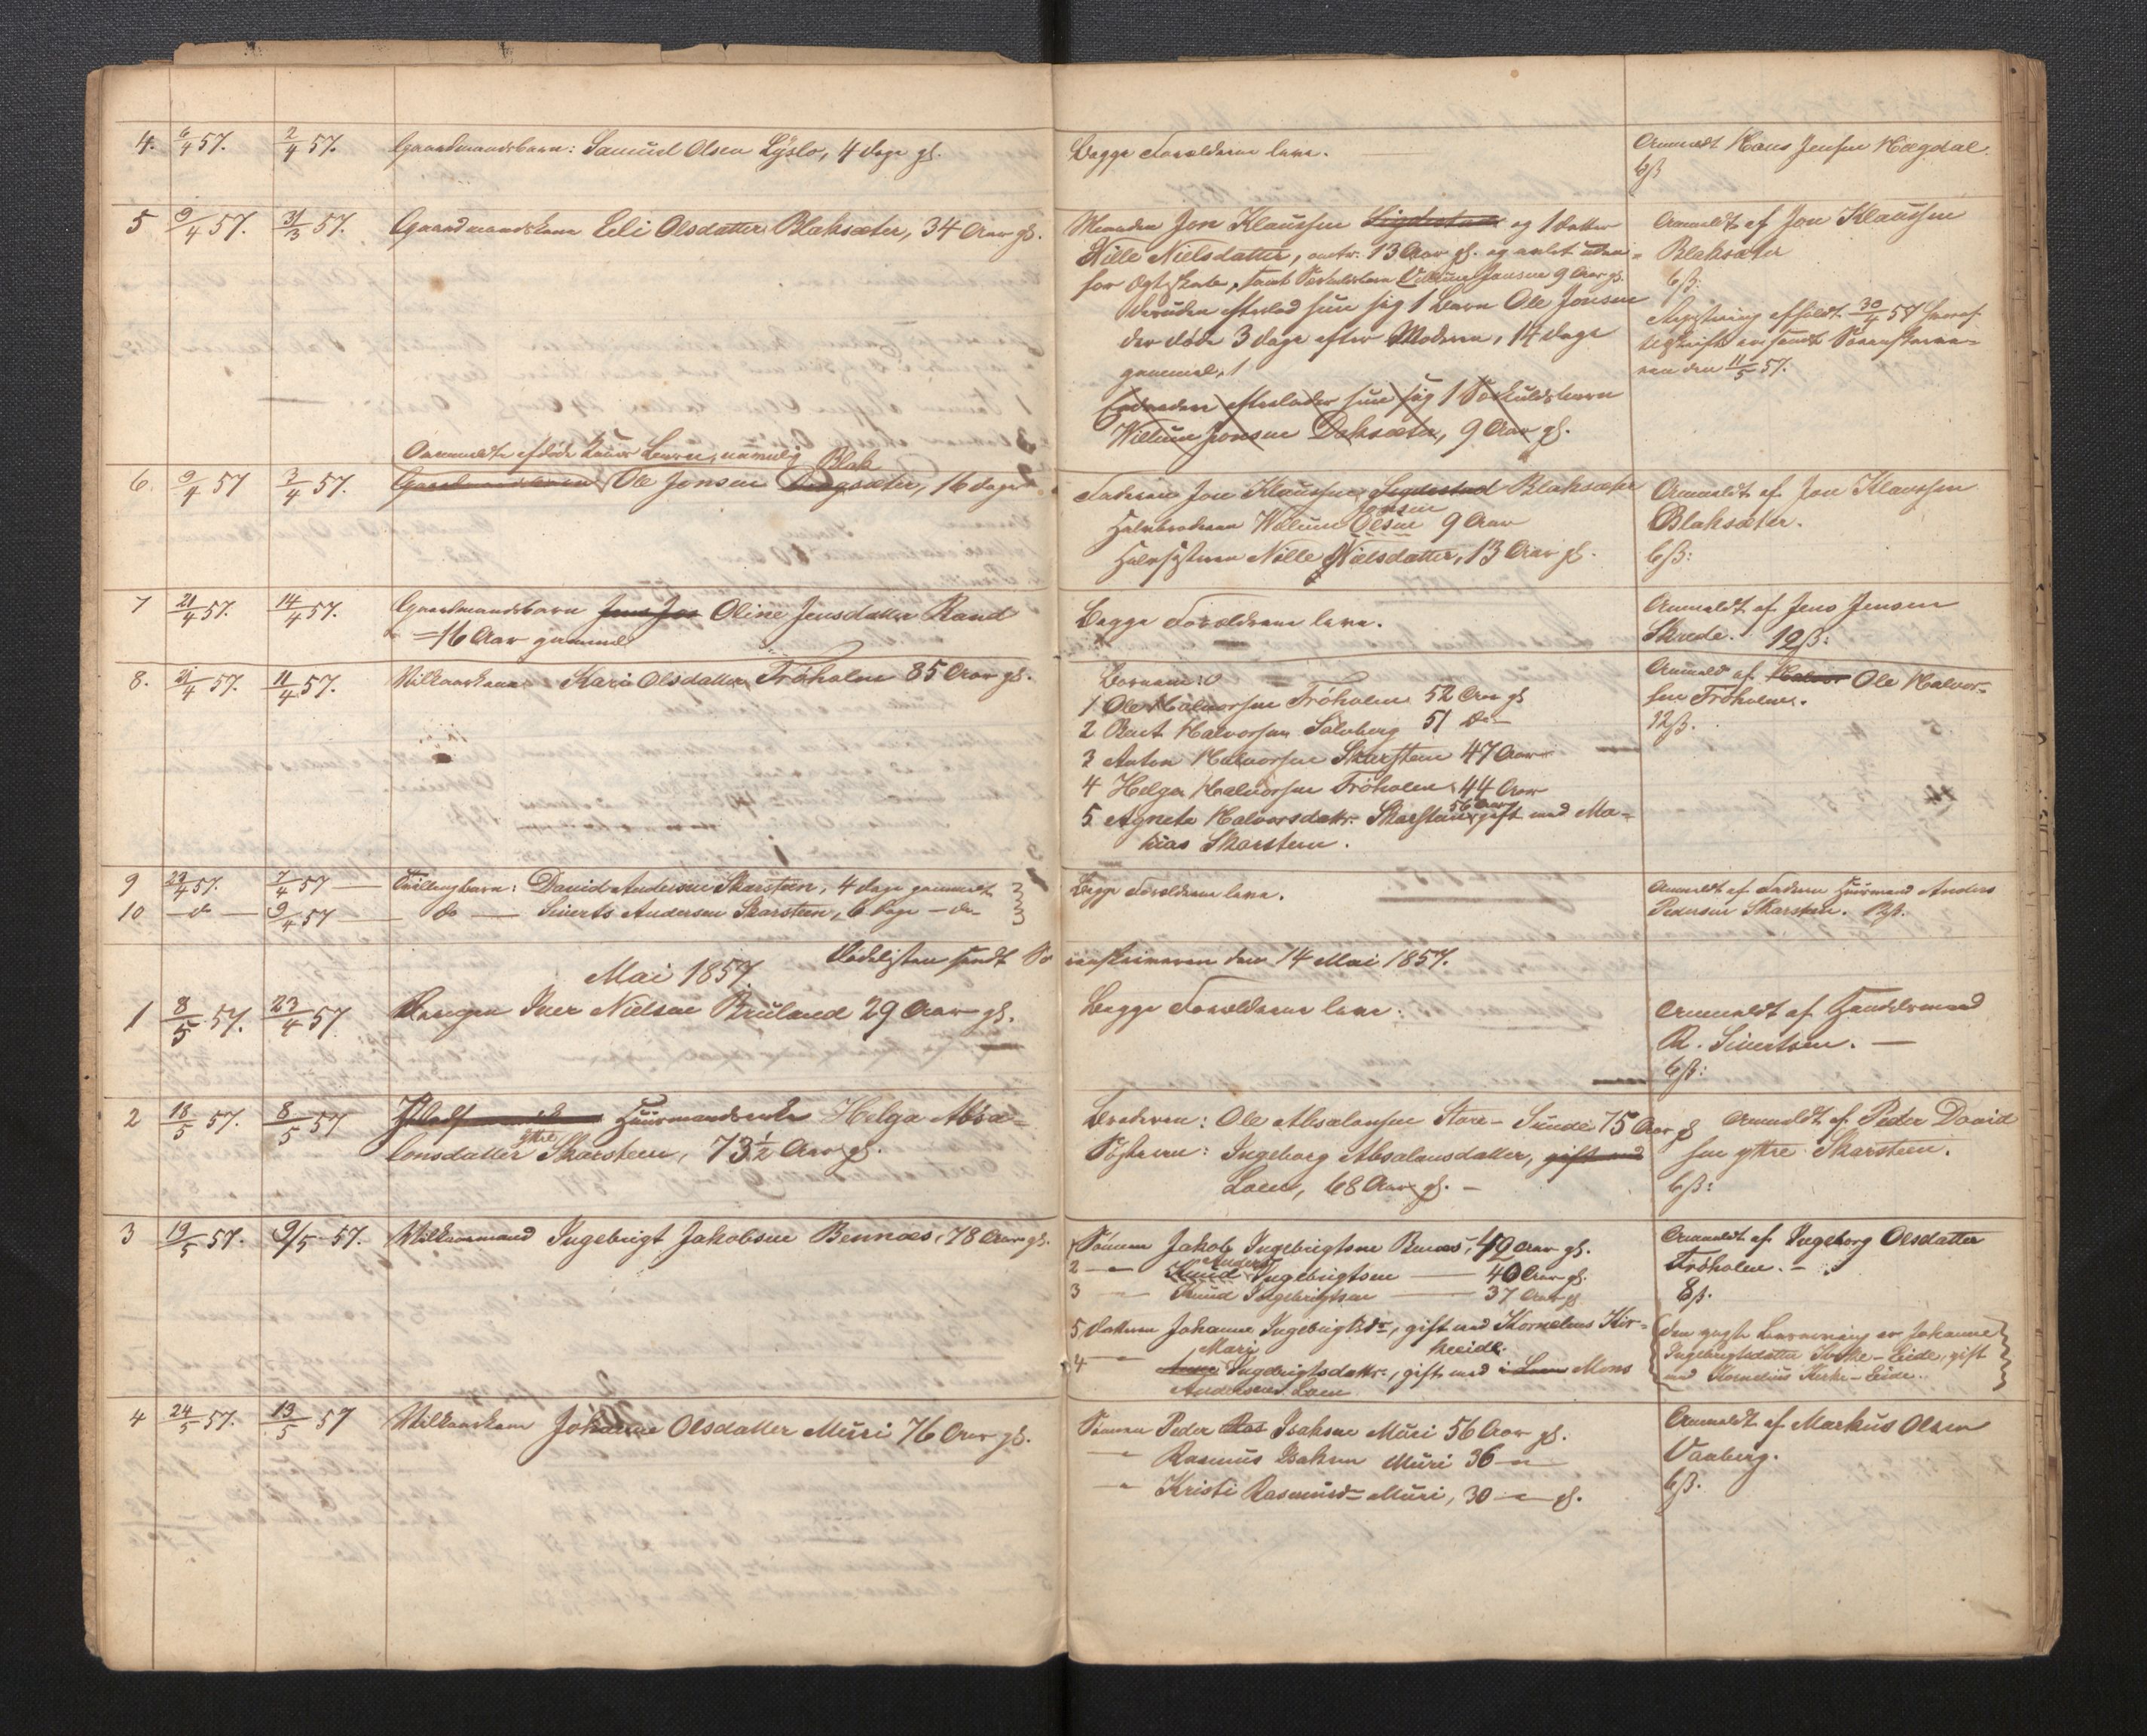 4. 6/4 57. 2/4 57. Gaardmandsbarn: Samuel Olsen Lyslo, 4 dage gl.
Begge Forældrene leve.
Anmeldt Hans Jensen Hægdal.
6ß
5 9/4 57. 31/3 57. Gaardmandskone Eli Olsdatter Blaksæter, 34 Aar gl.
Manden Jon Klaussen og 1 datter
Nille Nielsdatter, 13 Aar gl. og avlet uden-
for Ægteskab, samt Willum Jonsen 9 Aar gl.
desuden efterlod hun sig 1 Barn Ole Jonsen
der døde 3 dage efter Moderen, 14 dage
gammel.
Endvidere efterlader hun sig 1 Sørkuldsbarn
Willum Jonsen Daksæter, 9 Aar gl.
Anmeldt af Jon Klaussen
Blaksæter
6ß:
Registrering afholdt 30/4 57 hvoraf
Udskrift er sendt Sorenskrive-
ren den 11/5 57.
Ovenmeldte afdøde Kones Barn, namnlig
6. 9/4 57 3/4 57. Gaardmandsbarn Ole Jonsen Blaksæter, 16 dage
Faderen Jon Klaussen Blaksæter
Halvbroderen Willum Jonsen 9 Aar
Halvsysteren Nille Nielsdatter, 13 Aar gl.
Anmeldt af Jon Klaussen
Blaksæter.
6ß:
7 21/4 57. 14/4 57. Gaardmandsbarn Jens Jos Oline Jensdatter Rand
16 Aar gammel
Begge Forældrene leve.
Anmeldt af Jens Jensen
Skrede. 12ß:
8. 21/4 57. 11/4 57. Vilkaarskone Kari Olsdatter Frøholm 85 Aar gl.
Børnene:
1 Ole Halvorsen Frøholm 52 Aar gl
2 Knut Halvorsen Solvberg 51 do
3 Anton Halvorsen Skarsten 47 Aar
4 Helge Halvorsen Frøholm 44 Aar
5. Agnete Halvorsdatr. Skarsten 56 Aar gift med Ma-
kias Skarsten.
Anmeldt af Halvor Ole Halvor-
sen Frøholm.
12ß.
9 22/4 57. 7/4 57 Tvillingbarn: David Andersen Skarsteen, 4 dage gammel
10 do 9/4 57 do Siverts Andersen Skarsteen, 6 dage do
Begge Forældrene leve.
Anmeldt af Faderen Huusmand Anders
Pedersen Skarsten. 12ß.
Dødelisten sendt So renskriveren den 14 Mai 1857.
Mai 1857.
1 8/5 57. 23/4 57 Drengen Iver Nielsen Bruland 29 Aar gl.
Begge Forældrene leve.
Anmeldt af Handelsmand
R. Sivertsen.
6ß:
2 18/5 57. 8/5 57 Huusmandsenke Helga Absa-
lonsdatter yttre Skarsteen, 73½ Aar gl.
Broderen: Ole Absalonsen Store-Sunde 75 Aar gl
Søsteren: Ingeborg Absalonsdatter, gift med
Loen, 68 Aar gl.
Anmeldt af Peder David
sen yttre Skarsteen.
6ß:
3 19/5 57. 9/5 57. Vilkaarmand Ingebrigt Jakobsen Bennæs, 78 Aar gl.
Sønnen Jakob Ingebrigtsen Bennæs, 49 Aar gl.
2 Anders Ingebrigtsen 40 Aar gl.
3 Knud Ingebrigtsen 37 Aar gl
5 Datteren Johanne Ingebrigtsdr., gift med Kornelius Kir-
keeide.
4 Mari Ingebrigtsdatter, gift med i Loen Mons
Andersen Loen
Anmeldt af Ingeborg Olsdatter
Frøholm.
8ß.
Den yngste Benævning er Johanne
Ingebrigtsdatter Kirke-Eide, gift
med Kornelius Kirke-Eide.
4 24/5 57. 13/5 57 Vilkaarskone Johanne Olsdatter Muri 76 Aar gl.
Sønnen Peder Ras Isaksen Muri 56 Aar gl.
Rasmus Isaksen Muri 36
Kristi Rasmusdr. Muri, 30 gl.
Anmeldt af Markus Olsen
Vanberg.
6ß.